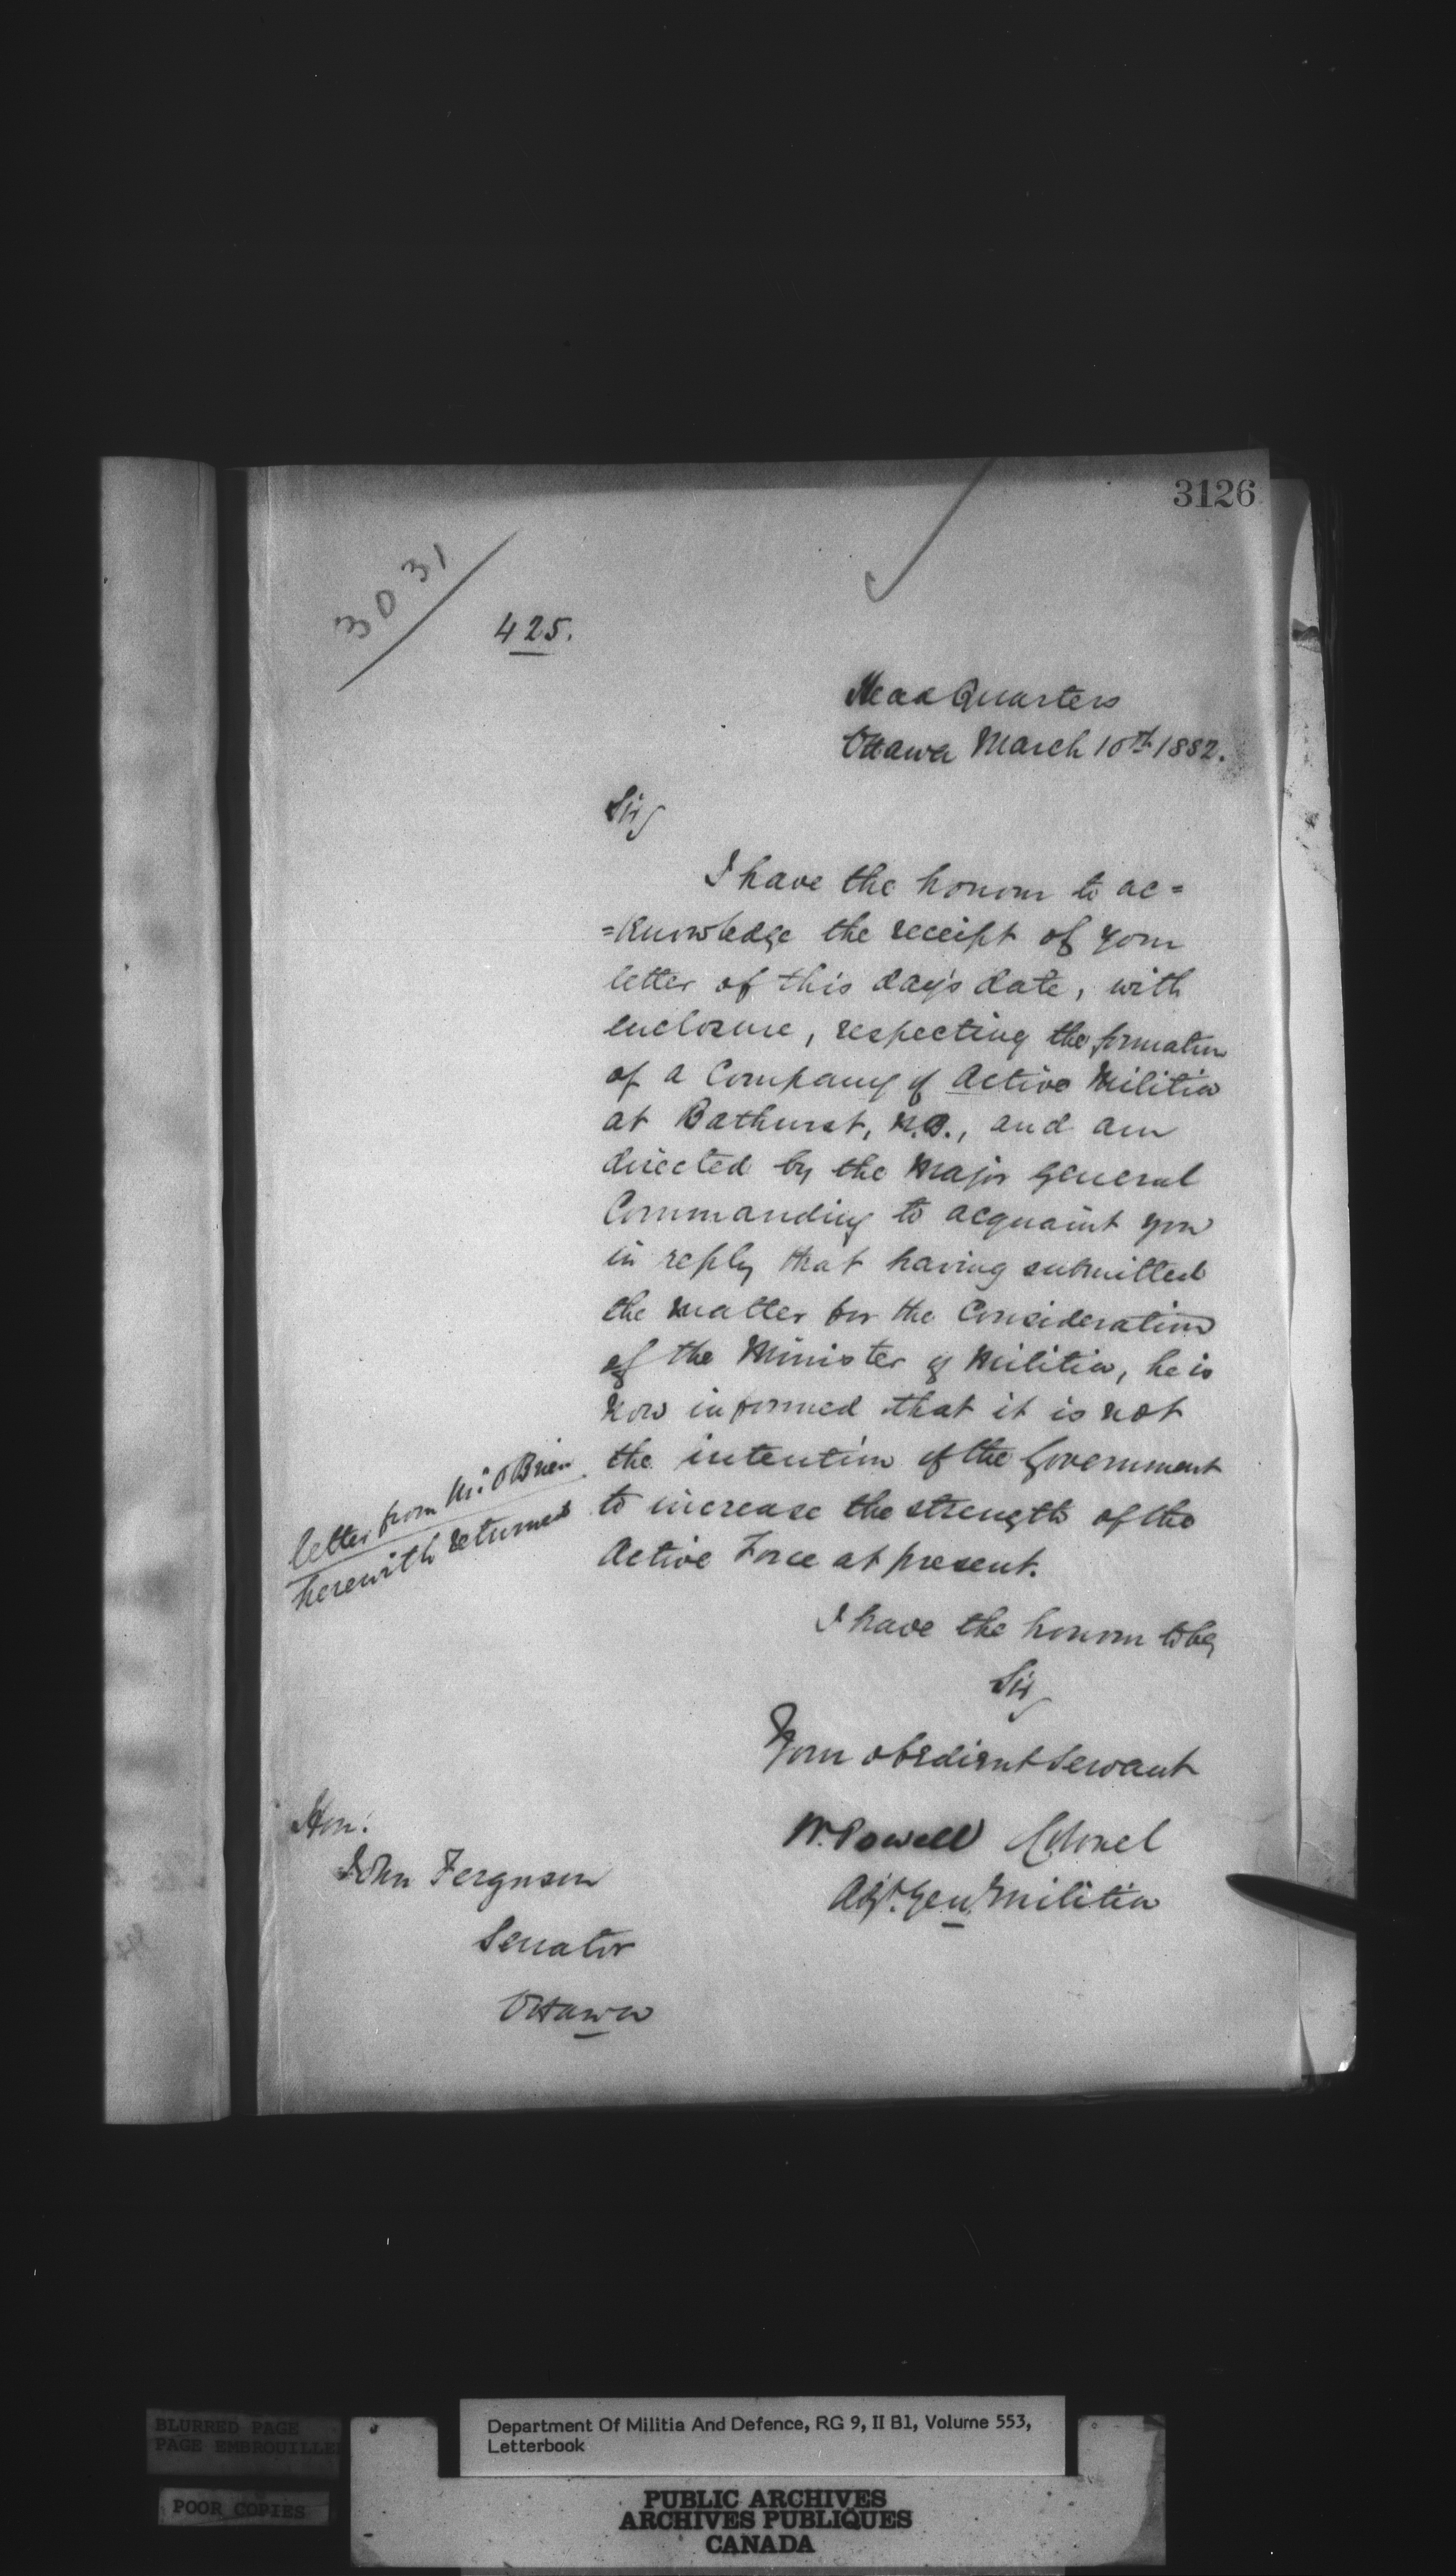 3126
3031
425.
Head Quarters
Ottawa March 10th 1882.
Sir,
I have the honour to ac=
=knowledge the receipt of your
letter of this day's date, with
enclosure, respecting the formation
of a Company of Active Militia
at Bathurst, N.B., and am
directed by the Major General
Commanding to acquaint you
in reply that having submitted
the matter for the Consideration
of the Minister of Militia, he is
now informed that it is not
the intention of the Government
to increase the strength of the
Active Force at present.
letter from Mr. O'Brien
herewith returned
I have the honour to be,
Sir,
Your obedient Servant
W. Powell Colonel
Adjt. Gen. Militia
Hon:
John Ferguson
Senator
Ottawa
BLURRED PAGE
PAGE EMBROUILLEE
POOR COPIES
Department Of Militia And Defence, RG 9, II B1, Volume 553,
Letterbook
PUBLIC ARCHIVES
ARCHIVES PUBLIQUES
CANADA